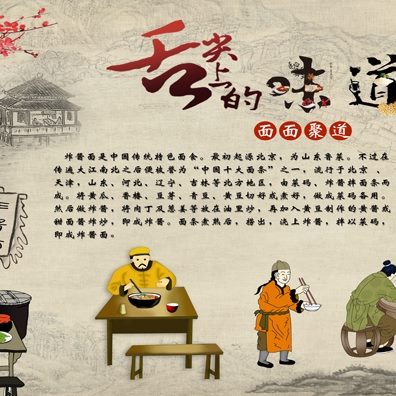 舌尖上的味道
面面聚道
炸酱面是中国传统特色面食。最初起源北京,为山东鲁菜。不过在
传遍大江南北之后便被誉为“中国十大面条”之一,流行于北京、
天津,山东、河北、辽宁、吉林等北方地区,由菜码、炸酱拌面条而
成。将黄瓜、香椿、豆芽、青豆、黄豆切好或煮好,做成菜码备用。
然后做炸酱,将肉丁及葱姜等放在油里炒,再加入黄豆制作的黄酱或
甜面酱炸炒,即成炸酱。面条煮熟后,捞出,浇上炸酱,拌以菜码,
即成炸酱面。